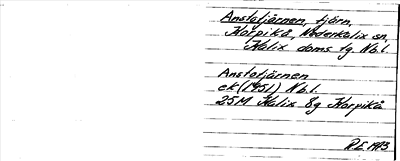 Anstotjärnen, tjärn,
Korpikå, Nederkalix sn,
Kalix doms tg. Nb.l.
Anstotjärnen
ek (1951) Nb.l.
25M Kalix 8g Korpikå
R.E. 1973